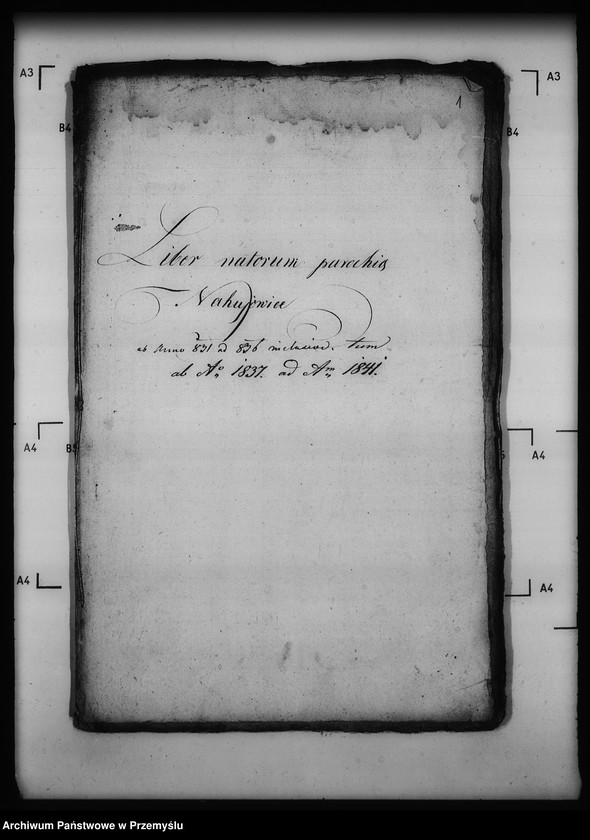 A3
A3
1
B4
B4
Liber natorum parochia
Nahujowice
ab Anno 831 ad 836 inclusive. tum
ab Aº 1837. ad Am 1841.
A4
B5
A4
A4
A4
Archiwum Państwowe w Przemyślu